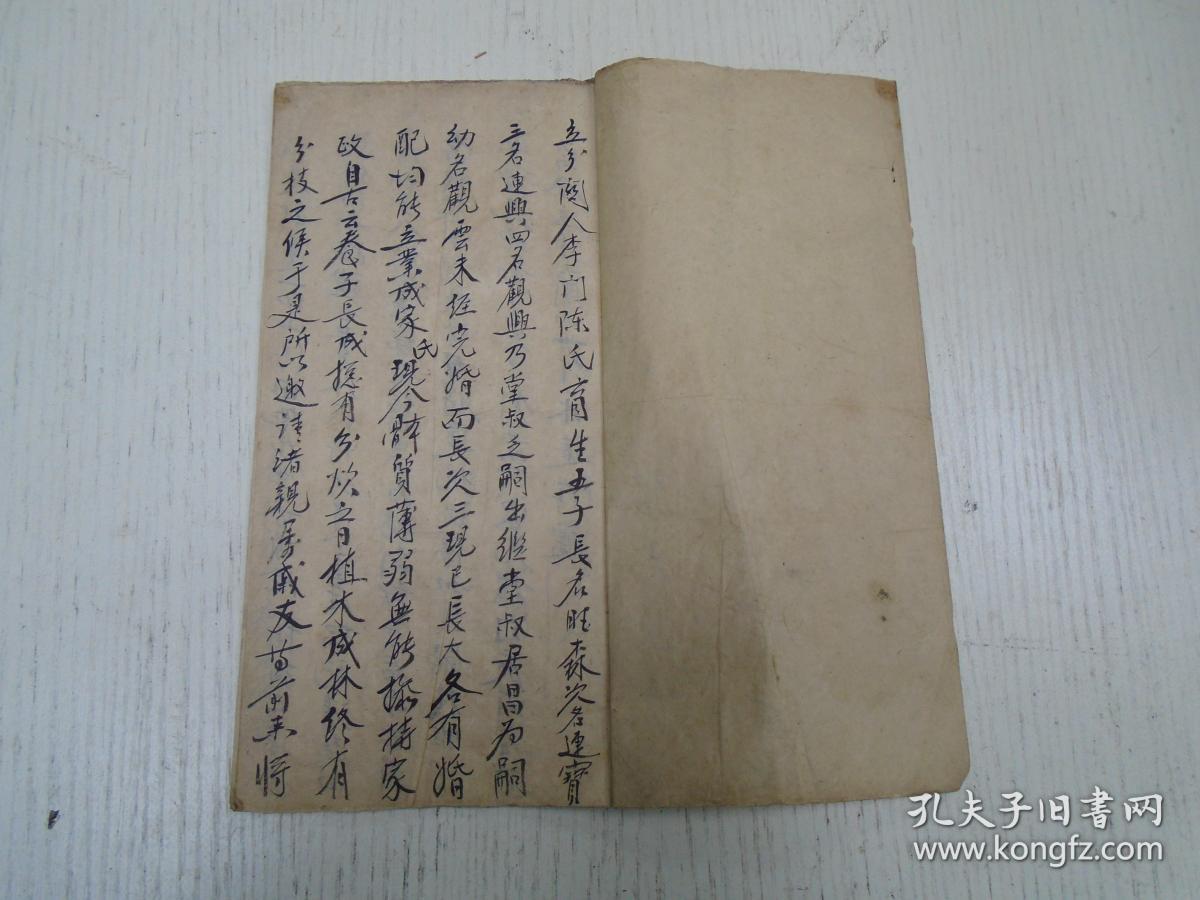 立分阄人李门陈氏育生五子長名旺森次名連寳
三名連興四名觀興乃堂叔之嗣出继堂叔居昌为嗣
幼名觀雲未经完婚而長次三現已長大各有婚
配均能立業成家氏現今體質薄弱無能操持家
政自古云養子長成總有分炊之日植木成林終有
分枝之候于是所以邀请诸親房戚友前来将
孔夫子旧书网
www.kongfz.com